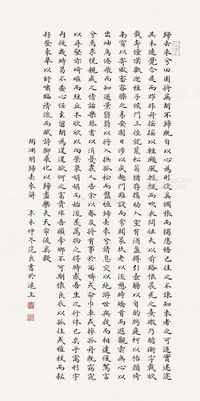 歸去來兮田園將蕪胡不歸既自以心為形役奚惆悵而獨悲悟已往之不諫知來者之可追實迷途
其未遠覺今是而昨非舟搖搖以輕颺風飄飄而吹衣問征夫以前路恨晨光之熹微乃瞻衡宇載欣
載奔僮僕歡迎稚子候門三徑就荒松菊猶存攜幼入室有酒盈樽引壺觴以自酌眄庭柯以怡顏倚
南窗以寄傲審容膝之易安園日涉以成趣門雖設而常關策扶老以流憩時矯首而遐觀雲無心以
出岫鳥倦飛而知還景翳翳以將入撫孤松而盤桓歸去來兮請息交以絕游世與我而相違復駕言
兮焉求悅親戚之情話樂琴書以消憂農人告余以春及將有事於西疇或命巾車或棹孤舟既窈窕
以尋壑亦崎嶇而經丘木欣欣以向榮泉涓涓而始流善萬物之得時感吾生之行休已矣乎寓形宇
內復幾時曷不委心任去留胡為遑遑欲何之富貴非吾願帝鄉不可期懷良辰以孤往或植杖而耘
耔登東皋以舒嘯臨清流而賦詩聊乘化以歸盡樂夫天命復奚疑
陶淵明歸去來辭 辛未仲冬 良書於滬上